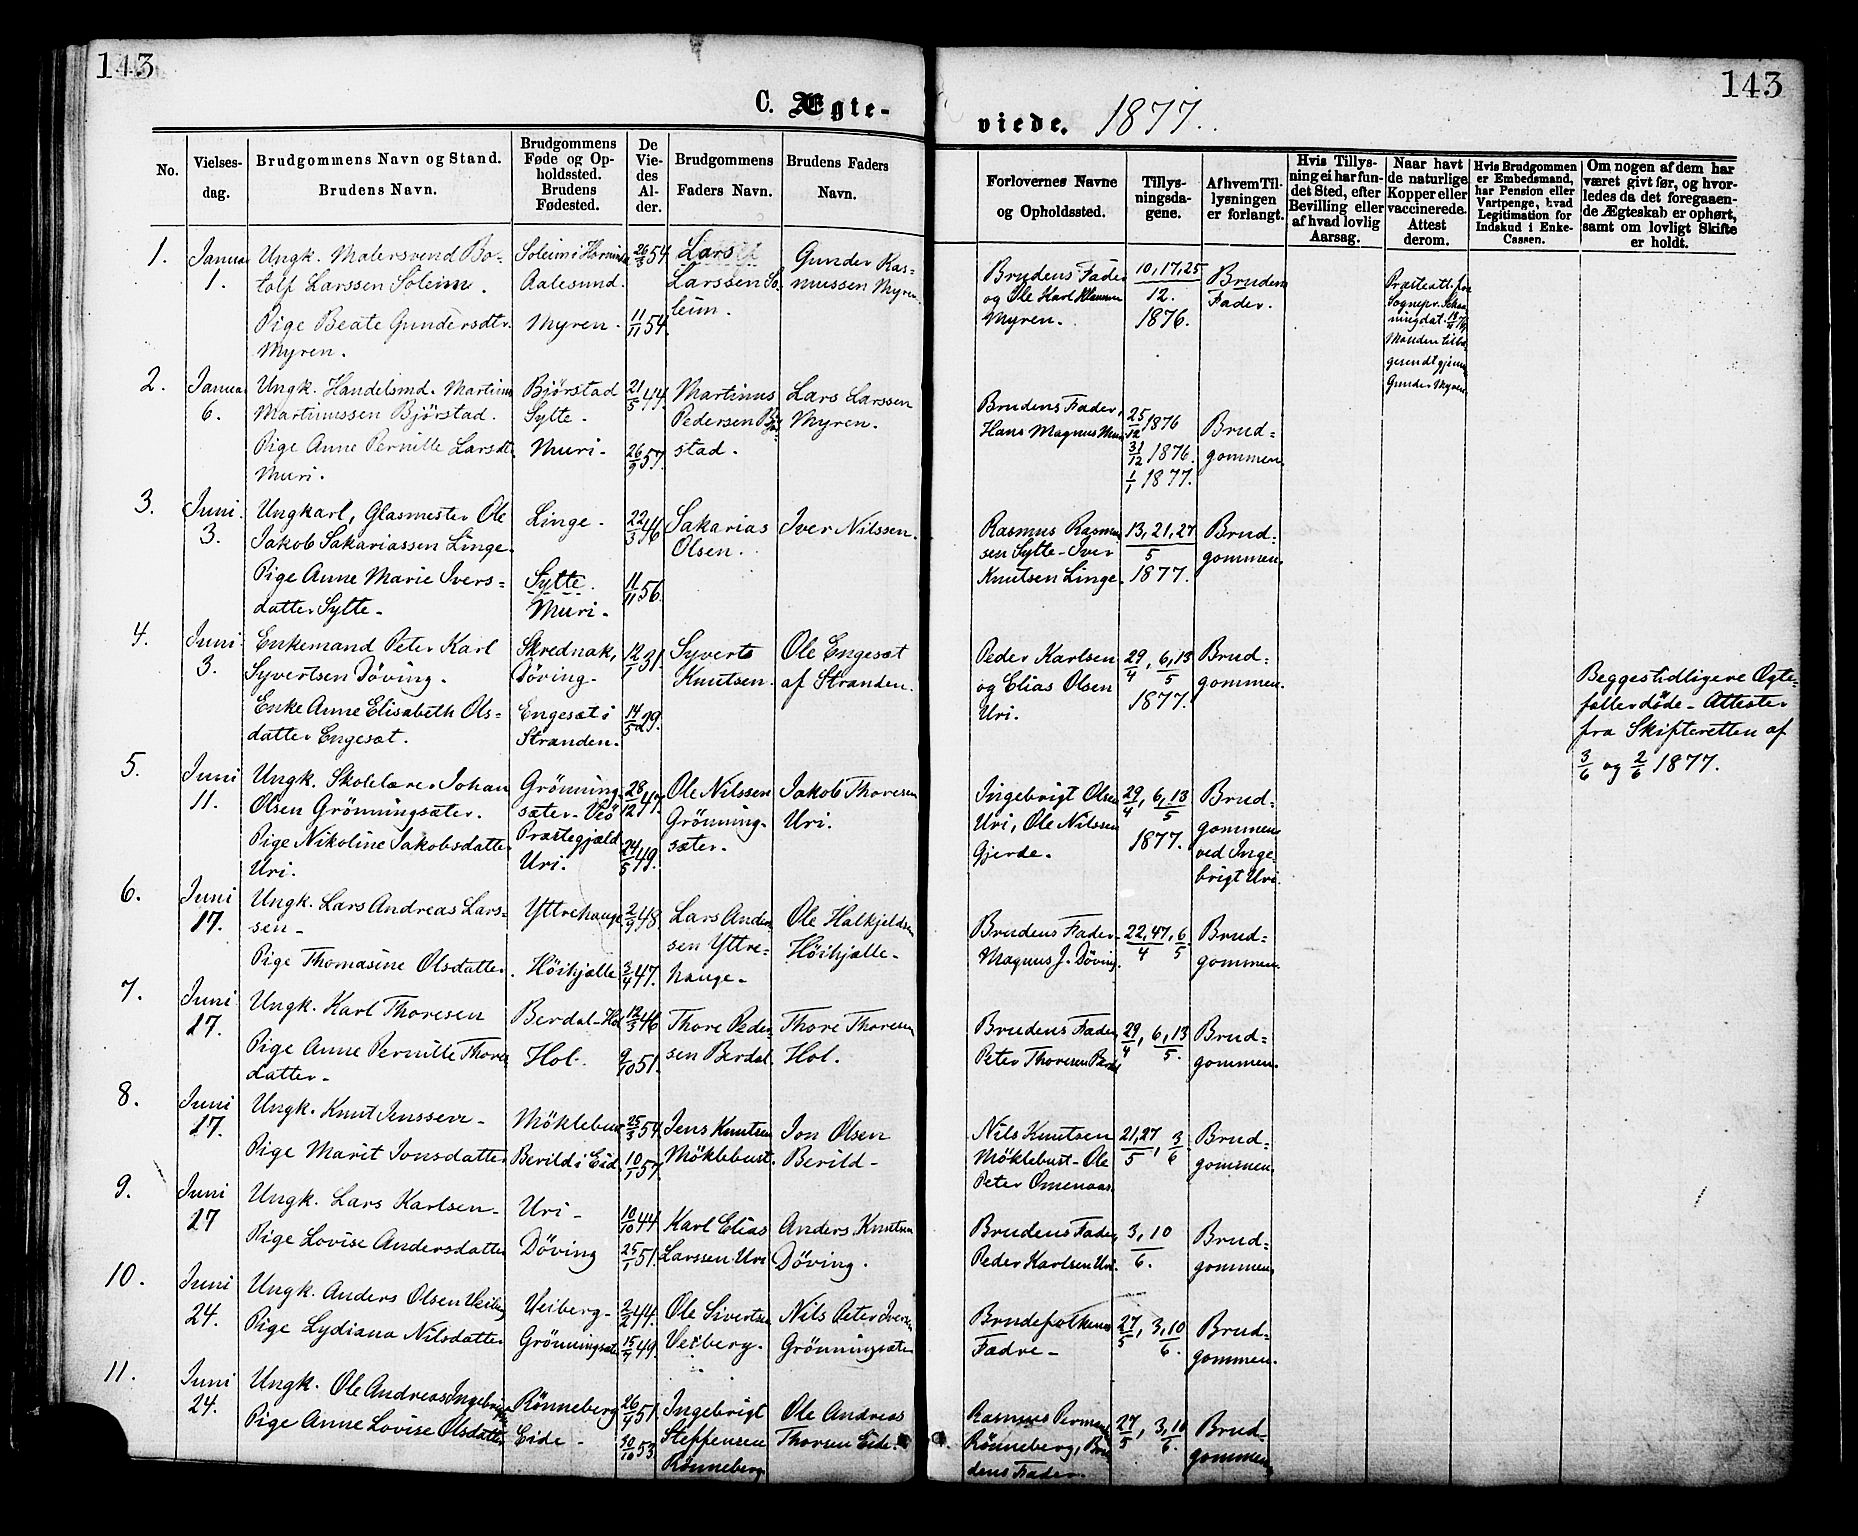 143
143
C. Ægte-
viede. 1877.
No.
Vielses-
dag.
Brudgommens Navn og Stand.
Brudens Navn.
Brudgommens
Føde og Op-
holdssted.
Brudens
Fødested.
De
Vie-
des
Al-
der.
Brudgommens
Faders Navn.
Brudens Faders
Navn.
Forlovernes Navne
og Opholdssted.
Tillys-
ningsda-
gene.
Af hvem Til-
lysningen
er forlangt.
Hvis Tillys-
ning ei har fun-
det Sted, efter
Bevilling eller
af hvad lovlig
Aarsag.
Naar havt
de naturlige
Kopper eller
vaccinerede.
Attest
derom.
Hvis Brudgommen
er Embedsmand,
har Pension eller
Vartpenge, hvad
Legitimation for
Indskud i Enke-
Cassen.
Om nogen af dem har
været givt før, og hvor-
ledes da det foregaaen-
de Ægteskab er ophørt,
samt om lovligt Skifte
er holdt.
1.
Janua
1.
Ungk. Malersvend Bo-
tolf Larssen Soleim.
Pige Beate Gundersdtr.
Myren.
Soleim i
Aalesund.
Myren.
26/3 54
11/11 54.
Lars
Larssen So
leim.
Gunder Ras-
mussen Myren.
Brudens Fader
og Ole Karl
Myren.
10, 17, 25
12.
1876.
Brudens
Fader.
Gunder Myren
2.
Janua
6.
Ungk. Handelsmd. Martinus
Martinussen Bjørstad.
Pige Anne Pernille Larsdt.
Muri.
Bjørstad
Sylte.
Muri.
21/5 44.
26/9 57.
Martinus
Pedersen Bjør-
stad.
Lars Larssen
Myren.
Brudens Fader,
Hans Magnus Muri
25/12 1876
31/12 1876.
1/1 1877.
Brud=
gommen.
3.
Juni
3.
Ungkarl, Glasmester Ole
Jakob Sakariassen Linge.
Pige Anne Marie Ivers=
datter Sylte.
Linge.
Sylte.
Muri.
22/3 46
11/11 56.
Sakarias
Olsen.
Iver Nilssen.
Rasmus Rasmus
sen Sylte - Iver
Knutsen Linge.
13, 21, 27
5
1877.
Brud=
gommen.
4.
Juni
3.
Enkemand Peter Karl
Syvertsen Döving.
Enke Anne Elisabeth Ols=
datter Engeset.
Skrednak,
Döving.
Engeset i
Stranden.
12/1 31.
14/5 29.
Syvert
Knutsen.
Ole Engeset
af Stranden.
Peder Karlsen
og Elias Olsen
Uri.
29/4, 6, 13/5
1877.
Brud=
gommen.
Begges tidligere Ægte=
feller döde - Attester
fra Skifteretten af
3/6 og 2/6 1877.
5.
Juni
11.
Ungk. Skolelærer Johan
Olsen Grönningsæter.
Pige Nikoline Jakobsdatter
Uri.
Grönning
sæter. Veö
Præstegjæld
Uri.
28/12 47.
24/5 49.
Ole Nilssen
Grönning-
sæter.
Jakob Thoresen
Uri.
Ingebrigt Olsen
Uri, Ole Nilssen
Gjerde.
29/4, 6, 13/5
1877.
Brud=
gommen
ved Inge
brigt Uri.
6.
Juni
17.
Ungk. Lars Andreas Lars=
sen.
Pige Thomasine Olsdatter.
Yttrehauge
Höihjelle
2/9 48.
3/4 47.
Lars Ander
sen Yttre=
hauge.
Ole Halkjeldsen
Höihjelle.
Brudens Fader.
Magnus J. Döving.
22, 47, 6
4 5
Brud=
gommen.
7.
Juni
17.
Ungk. Karl Thoresen
Pige Anne Pernille Thores
datter.
Berdal - Hol
Hol.
12/3 46
9/10 51.
Thore Peder
sen Berdal.
Thore Thoresen
Hol.
Brudens Fader,
Peter Thoresen Berdal
29/4, 6, 13/5.
Brud=
gommen.
8.
Juni
17.
Ungk. Knut Jenssen.
Pige Marit Jonsdatter
Möklebust
Berild i Eid.
25/3 54.
10/1 57.
Jens Knutsen
Möklebust.
Jon Olsen
Berild.
Nils Knutsen
Möklebust - Ole
Peter Omenaas.
21, 27/5, 3/6
Brud=
gommen.
9.
Juni
17
Ungk. Lars Karlsen.
Pige Lovise Andersdatter
Uri.
Döving
10/10 44
25/1 51.
Karl Elias
Larssen Uri
Anders Knutsen
Döving.
Brudens Fader,
Peder Karlsen Uri.
3, 10
6.
Brud=
gommen.
10.
Juni
24.
Ungk. Anders Olsen Veiberg
Pige Lydiana Nilsdatter
Veiberg.
Grönningsæter
2/2 44.
15/9 49.
Ole Sivertsen
Veiberg.
Nils Peter Iversen
Grönningsæter
Brudefolkenes
Fædre.
27/5, 3, 10/6.
Brud=
gommen.
11.
Juni
24.
Ungk. Ole Andreas Ingebrigts
Pige Anne Lovise Olsdatter
Rönneberg
Eide.
26/4 51.
53.
Ingebrigt
Steffensen
Rönneberg.
Ole Andreas
Thoresen Eide.
Rasmus
Rönneberg, Bru
dens Fader.
27/5, 3, 10/6.
Brud=
gommen.